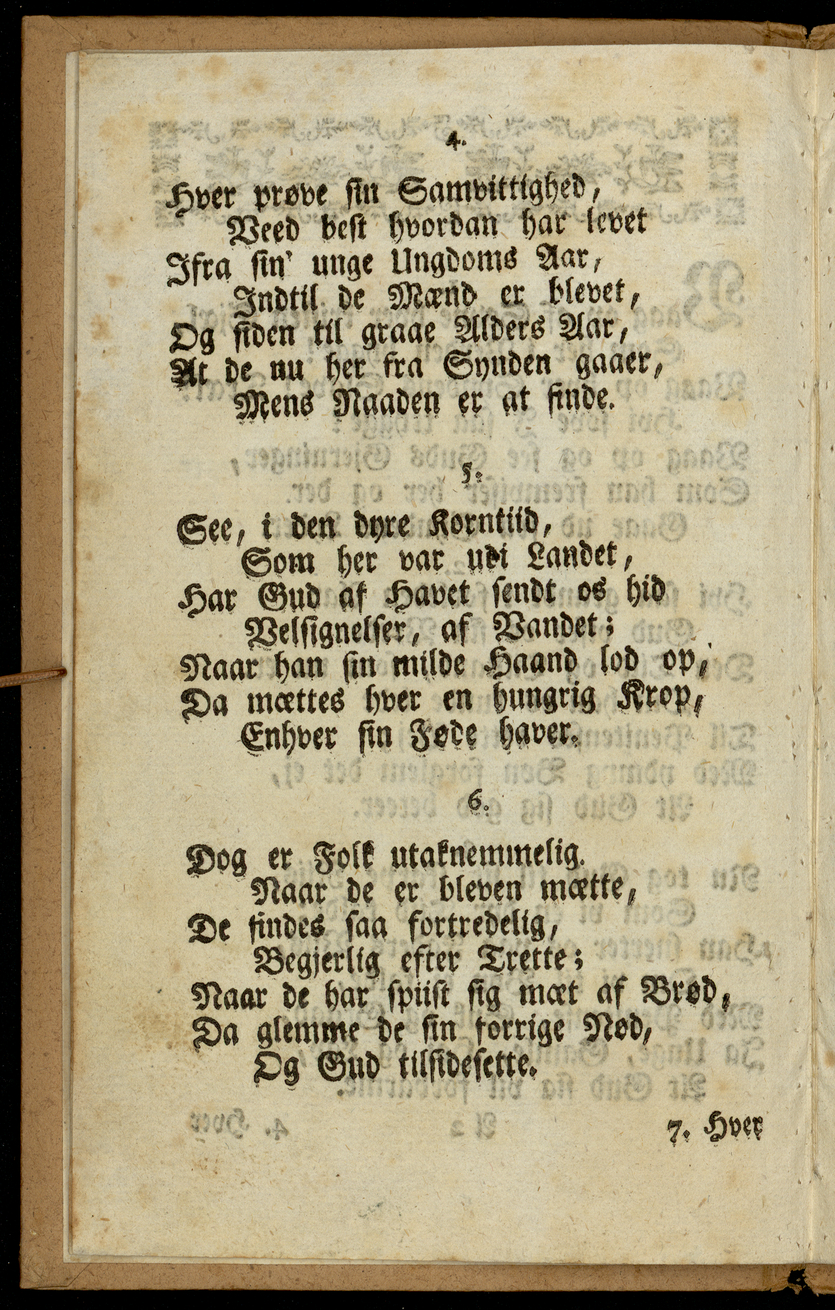 4.
Hver prøve sin Samvittighed,
Veed best hvordan har levet
Ifra sin' unge Ungdoms Aar,
Indtil de Mænd er blevet,
Og siden til graae Alders Aar,
At de nu her fra Synden gaaer,
Mens Naaden er at finde.
5.
See, i den dyre Korntiid,
Som her var udi Landet,
Har Gud af Havet sendt os hid
Velsignelser, af Vandet;
Naar han sin milde Haand lod op,
Da mættes hver en hungrig Krop,
Enhver sin Føde haver.
6.
Dog er Folk utaknemmelig.
Naar de er bleven mætte,
De findes saa fortredelig,
Begjerlig efter Trette;
Naar de har spiist sig mæt af Brød,
Da glemme de sin forrige Nød,
Og Gud tilsidesette.
7. Hver